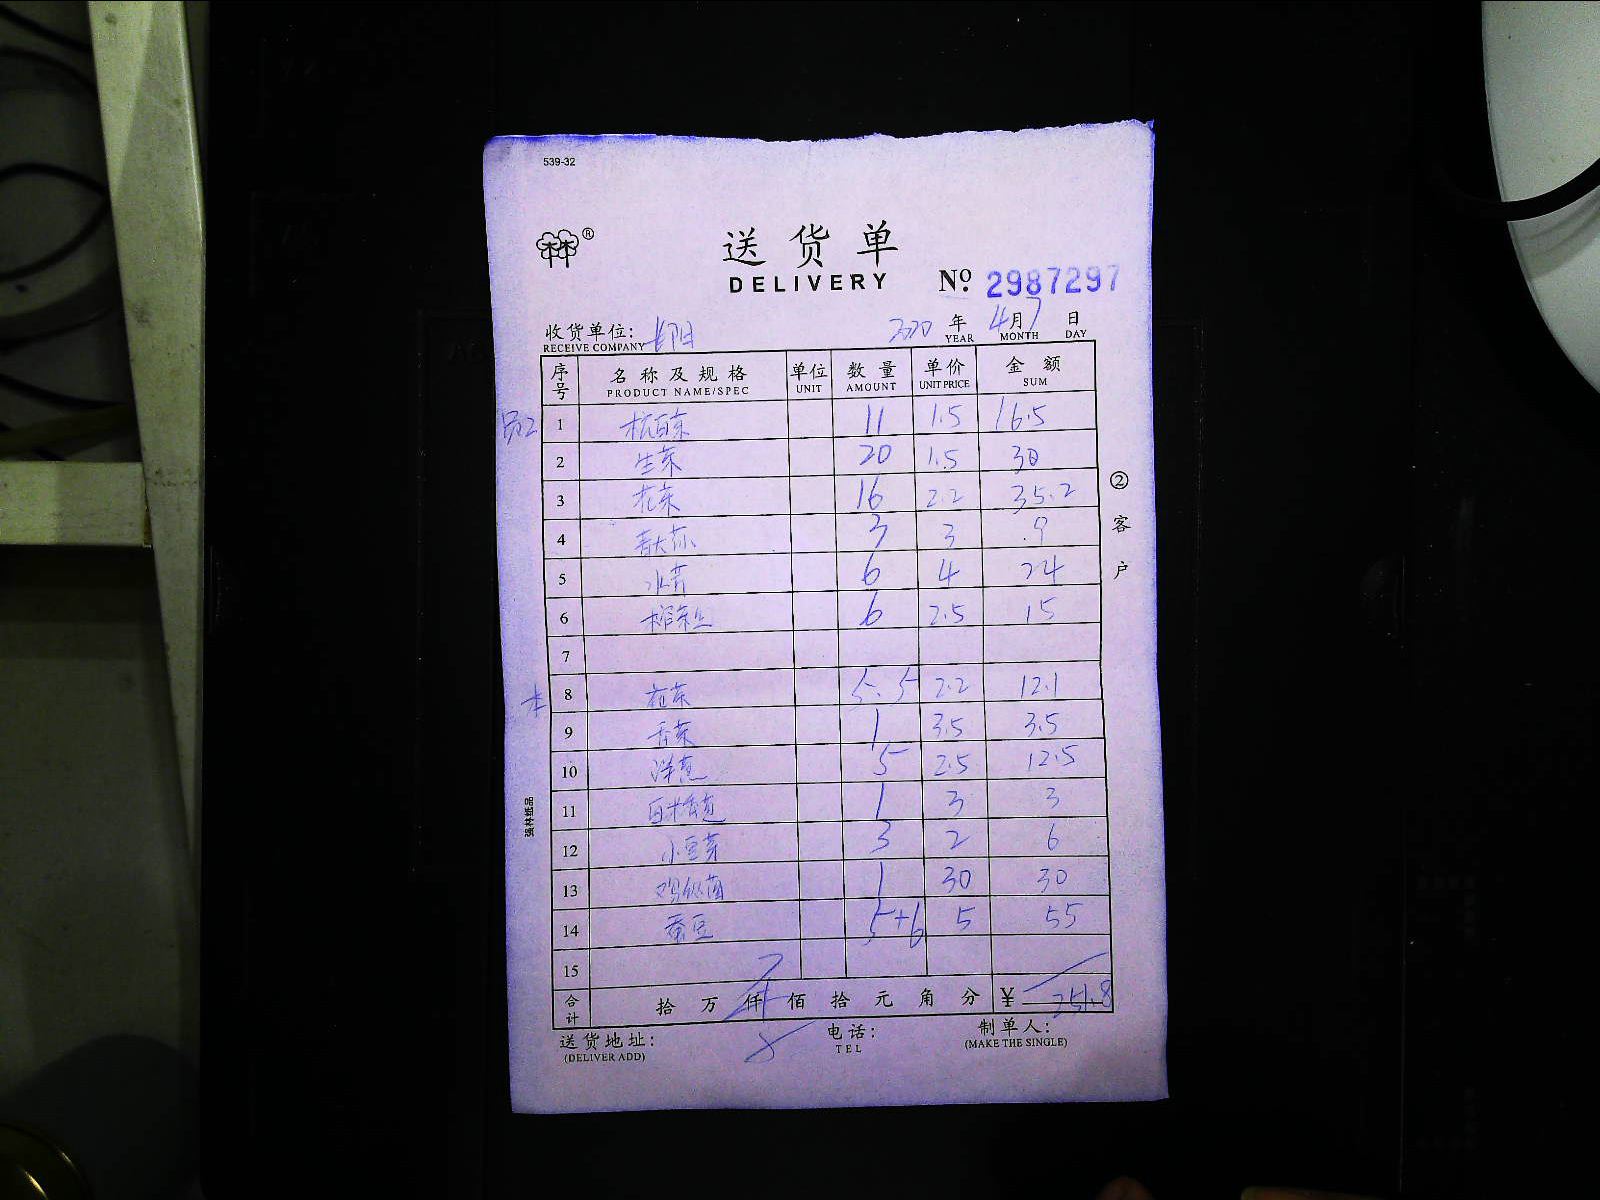 539-32
林林®
送货单
DELIVERY No. 2987297
收货单位: 2020 年 4月7 日
RECEIVE COMPANY YEAR MONTH DAY
序号 名称及规格 单位 数量 单价 金额
PRODUCT NAME/SPEC UNIT AMOUNT UNIT PRICE SUM
1 杭白菜 11 1.5 16.5
2 生菜 20 1.5 30
3 花菜 16 2.2 35.2
4 3 3 9
5 水芹 6 4 24
6 榨菜丝 6 2.5 15
7
本 8 花菜 5.5 2.2 12.1
9 香菜 1 3.5 3.5
10 洋葱 5 2.5 12.5
11 1 3 3
12 小豆芽 3 2 6
13 鸡枞菌 1 30 30
14 蚕豆 5+6 5 55
15
合计 拾万仟佰拾元角分 ¥ 251.8
送货地址: 电话: 制单人:
(DELIVER ADD) TEL (MAKE THE SINGLE)
②客户
强林纸品